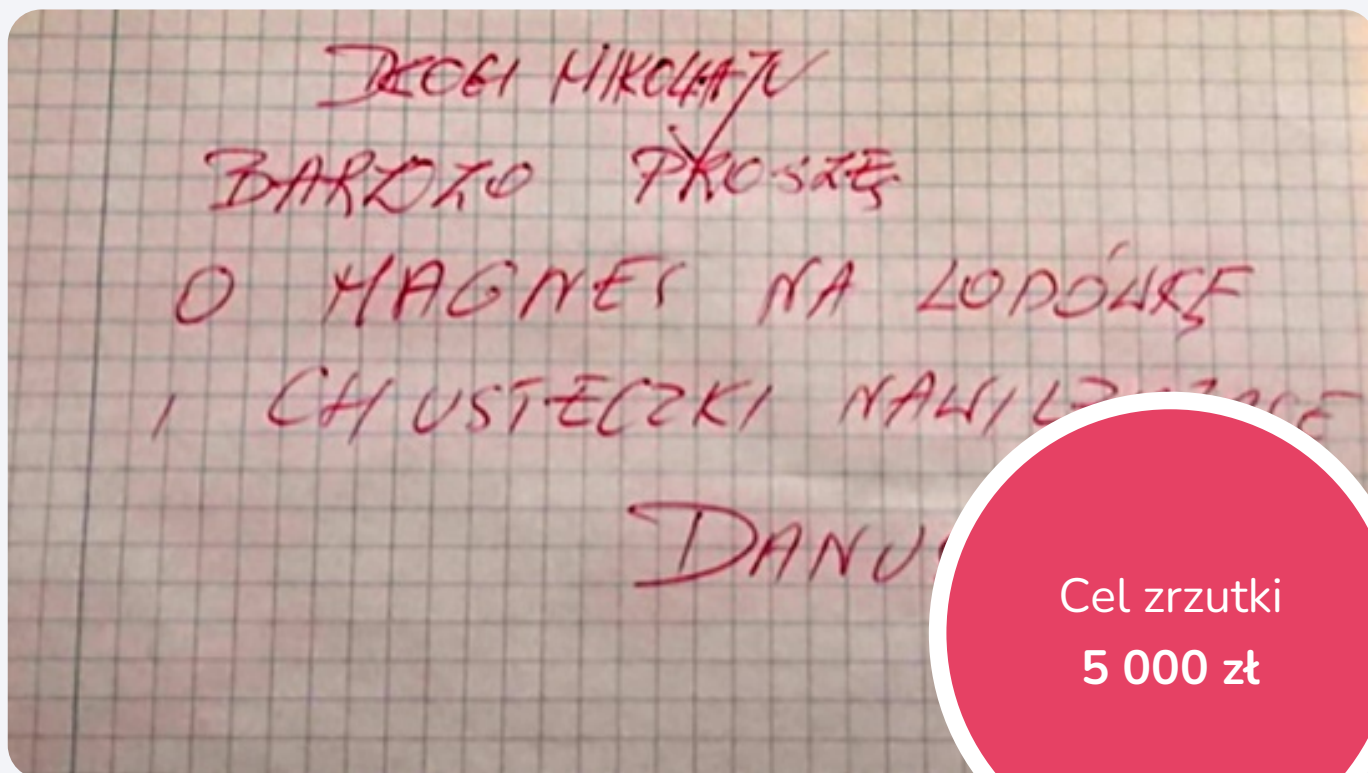 DROGI MIKOŁAJU
BARDZO PROSZĘ
O MAGNES NA LODÓWKĘ
I CHUSTECZKI
DANU
Cel zrzutki
5 000 zł